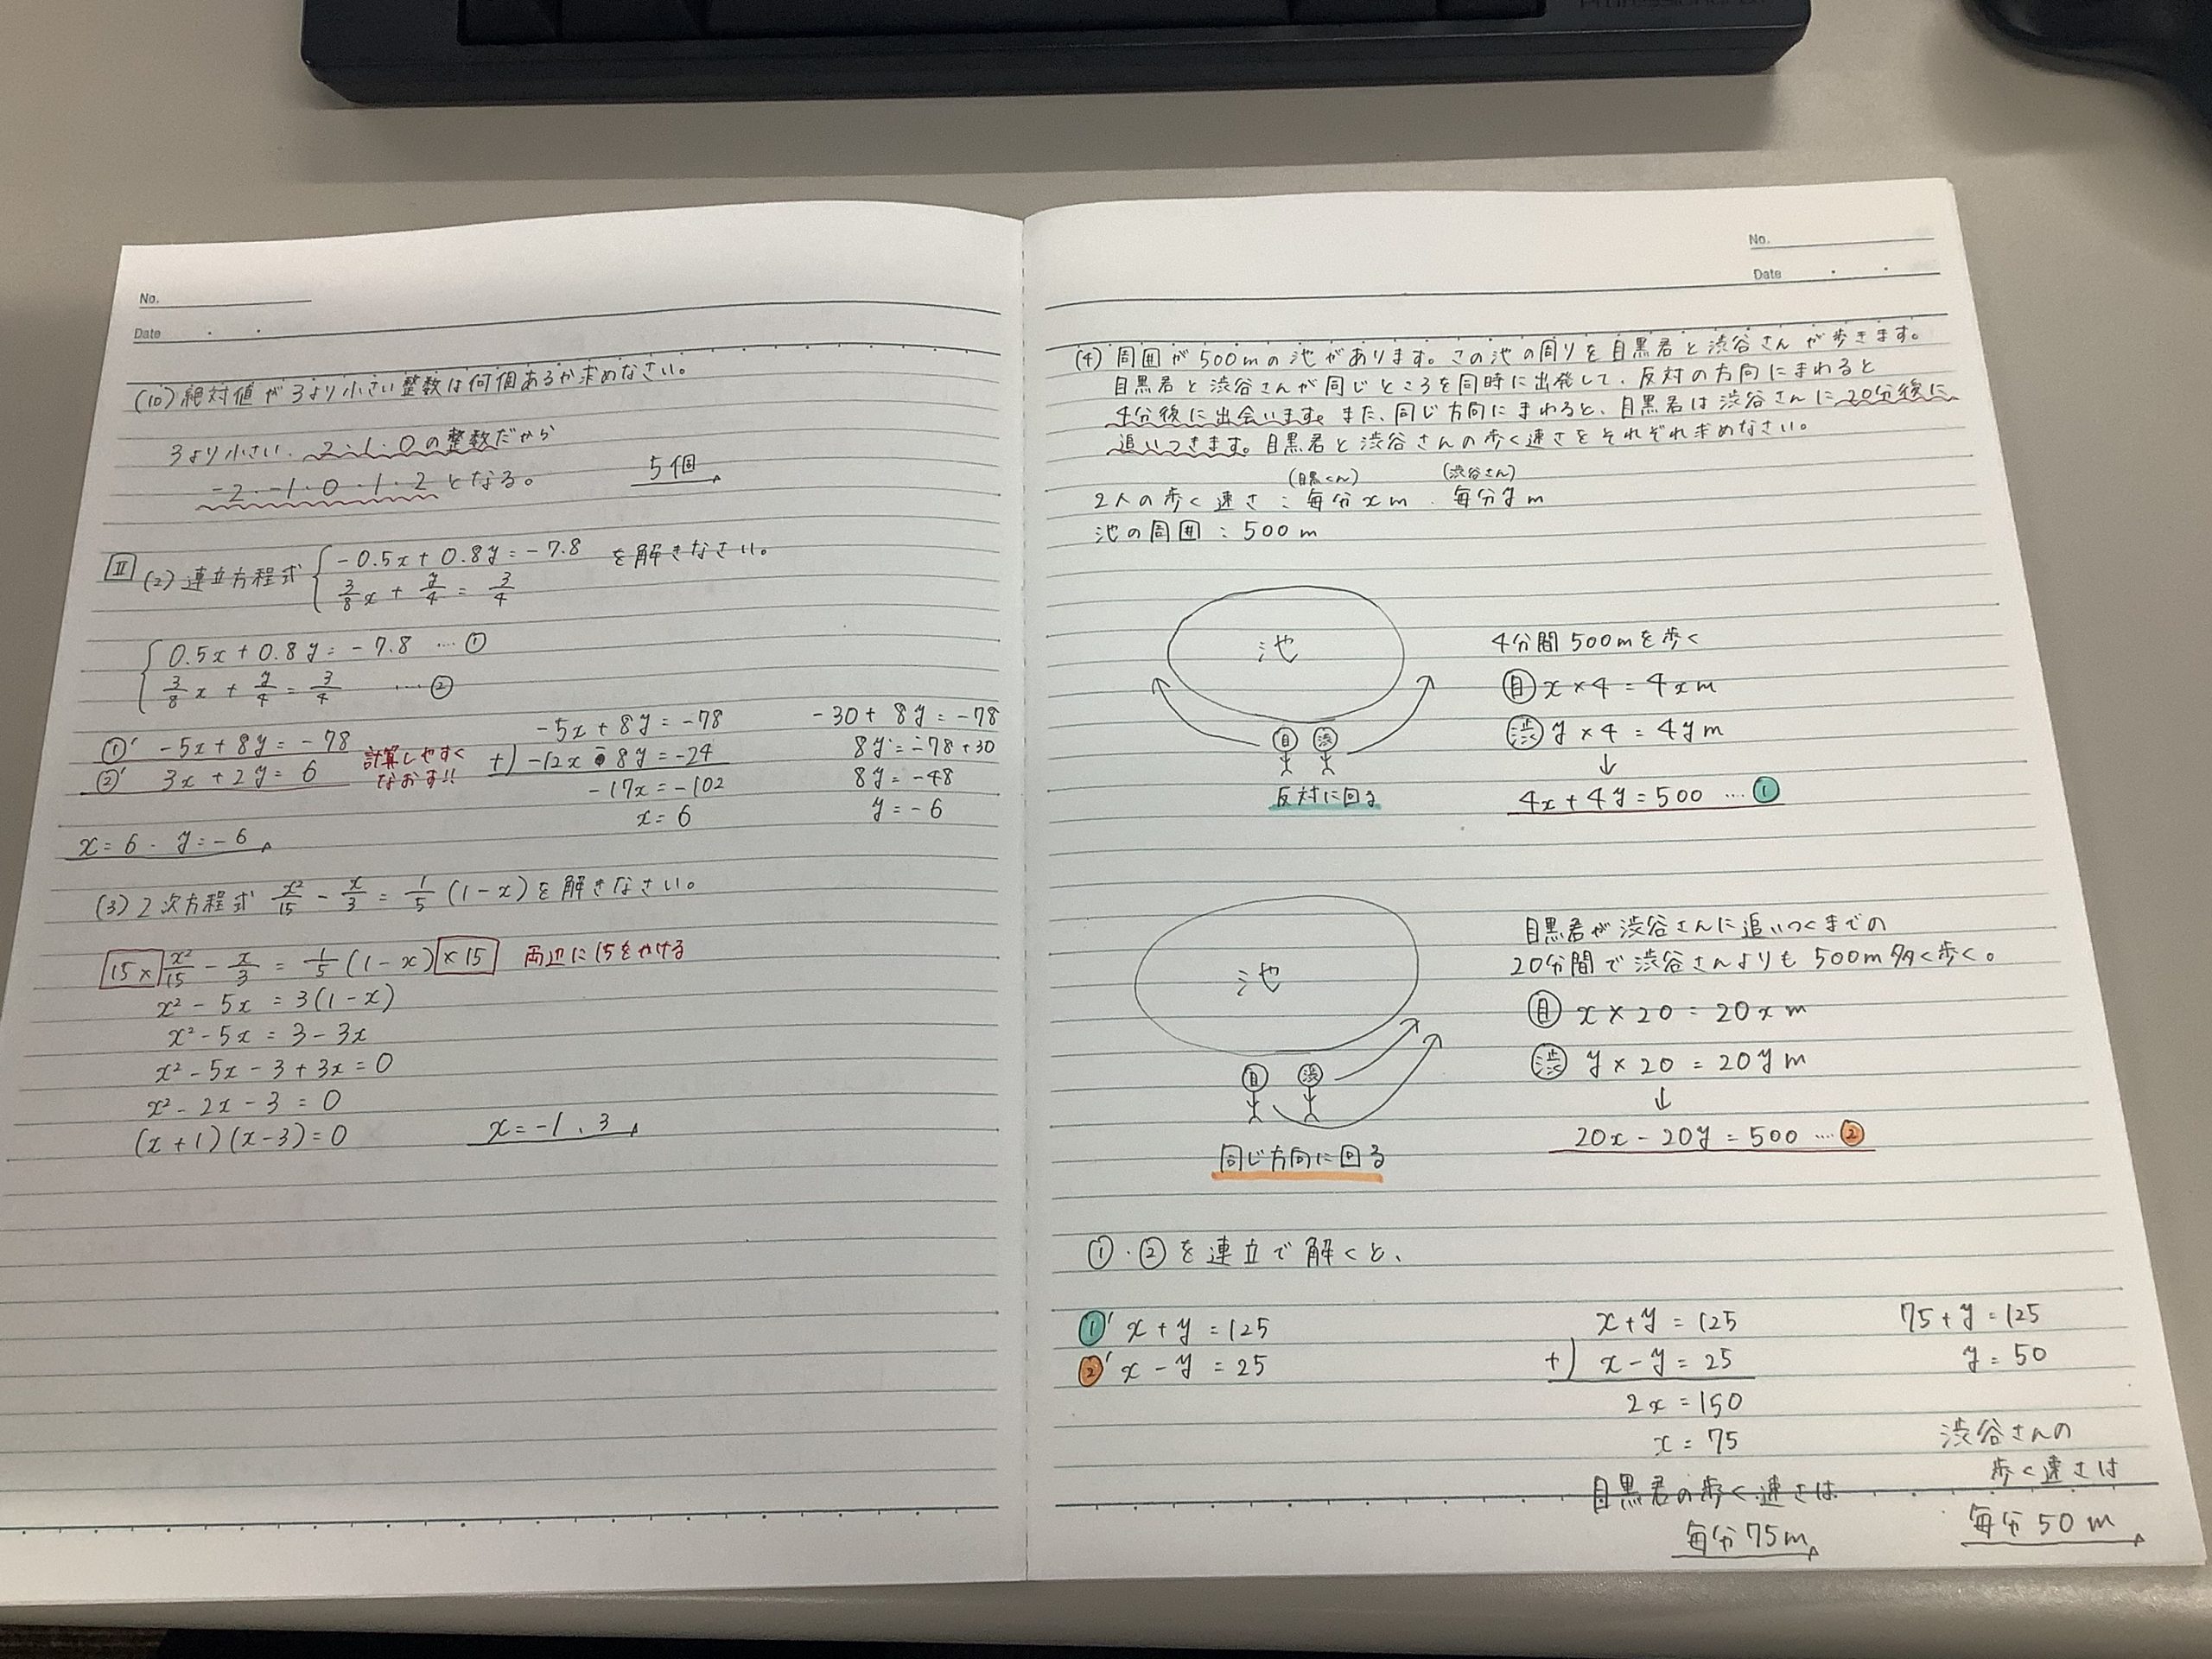 No.
Date
(10) 絶対値が3より小さい整数は何個あるか求めなさい。
3より小さい、2・1・0の整数だから
-2・-1・0・1・2 となる。
5個
Ⅱ (2) 連立方程式 { -0.5x + 0.8y = -7.8 を解きなさい。
3/8 x + y/4 = 3/4
{ 0.5x + 0.8y = -7.8 … ①
3/8 x + y/4 = 3/4 … ②
①' -5x + 8y = -78
②' 3x + 2y = 6
計算しやすく
なおす!!
-5x + 8y = -78
+) -12x - 8y = -24
-17x = -102
x = 6
-30 + 8y = -78
8y = -78 + 30
8y = -48
y = -6
x = 6 . y = -6
(3) 2次方程式 x²/15 - x/3 = 1/5 (1-x) を解きなさい。
15× x²/15 - x/3 = 1/5 (1-x) ×15 両辺に15をかける
x² - 5x = 3(1-x)
x² - 5x = 3 - 3x
x² - 5x - 3 + 3x = 0
x² - 2x - 3 = 0
(x+1)(x-3) = 0
x = -1、3
No.
Date
(4) 周囲が500mの池があります。この池の周りを目黒君と渋谷さんが歩きます。
目黒君と渋谷さんが同じところを同時に出発して、反対の方向にまわると
4分後に出会います。また、同じ方向にまわると、目黒君は渋谷さんに20分後に
追いつきます。目黒君と渋谷さんの歩く速さをそれぞれ求めなさい。
(目黒くん) (渋谷さん)
2人の歩く速さ : 毎分xm . 毎分ym
池の周囲 : 500m
池
目 渋
反対に回る
4分間500mを歩く
目 x×4 = 4xm
渋 y×4 = 4ym
↓
4x + 4y = 500 … ①
池
目 渋
同じ方向に回る
目黒君が渋谷さんに追いつくまでの
20分間で渋谷さんよりも500m多く歩く。
目 x×20 = 20xm
渋 y×20 = 20ym
↓
20x - 20y = 500 … ②
①・②を連立で解くと、
①' x + y = 125
②' x - y = 25
x + y = 125
+) x - y = 25
2x = 150
x = 75
目黒君の歩く速さは
毎分75m
75 + y = 125
y = 50
渋谷さんの
歩く速さは
毎分50m